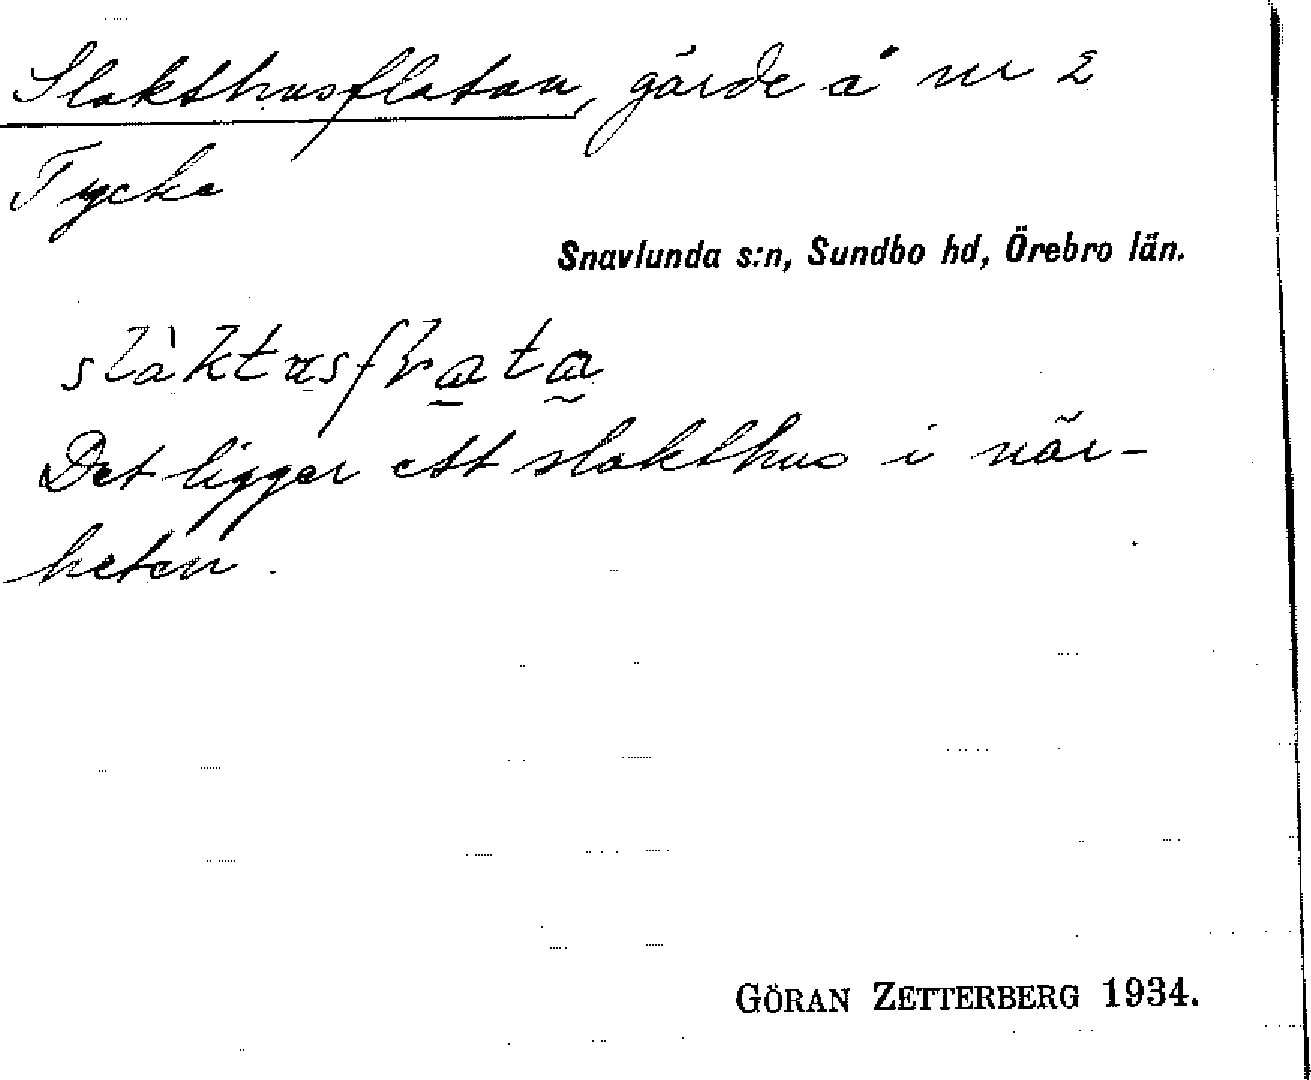 Slakthusflatan, gärde å nr 2
Tycke
Snavlunda s:n, Sundbo hd, Örebro län.
Det ligger ett slakthus i när-
heten.
GÖRAN ZETTERBERG 1934.